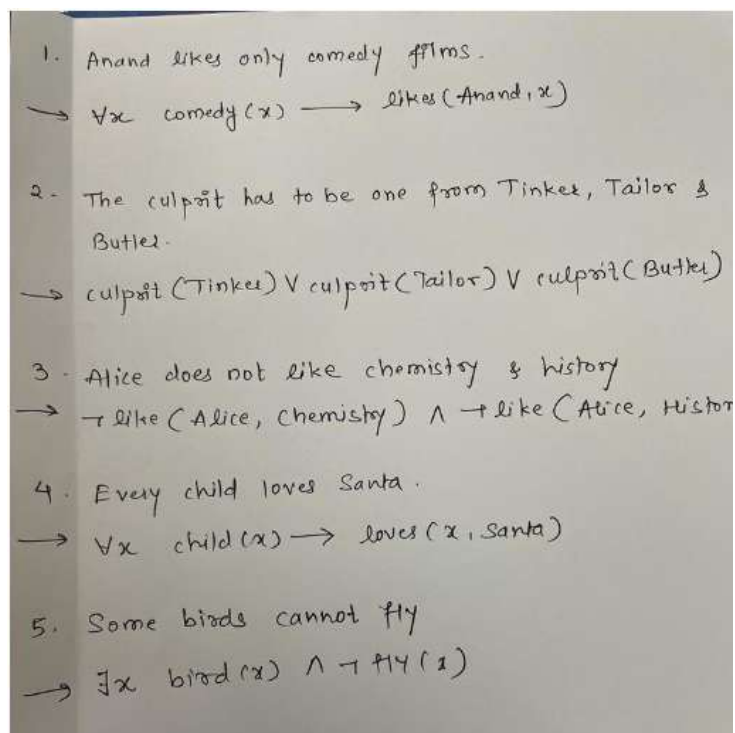 1. Anand likes only comedy films.
→ ∀x comedy(x) → likes(Anand, x)
2. The culprit has to be one from Tinker, Tailor &
Butler.
→ culprit(Tinker) ∨ culprit(Tailor) ∨ culprit(Butler)
3. Alice does not like chemistry & history
→ ¬ like(Alice, Chemistry) ∧ ¬ like(Alice, Histor
4. Every child loves Santa.
→ ∀x child(x) → loves(x, Santa)
5. Some birds cannot fly
→ ∃x bird(x) ∧ ¬ fly(x)